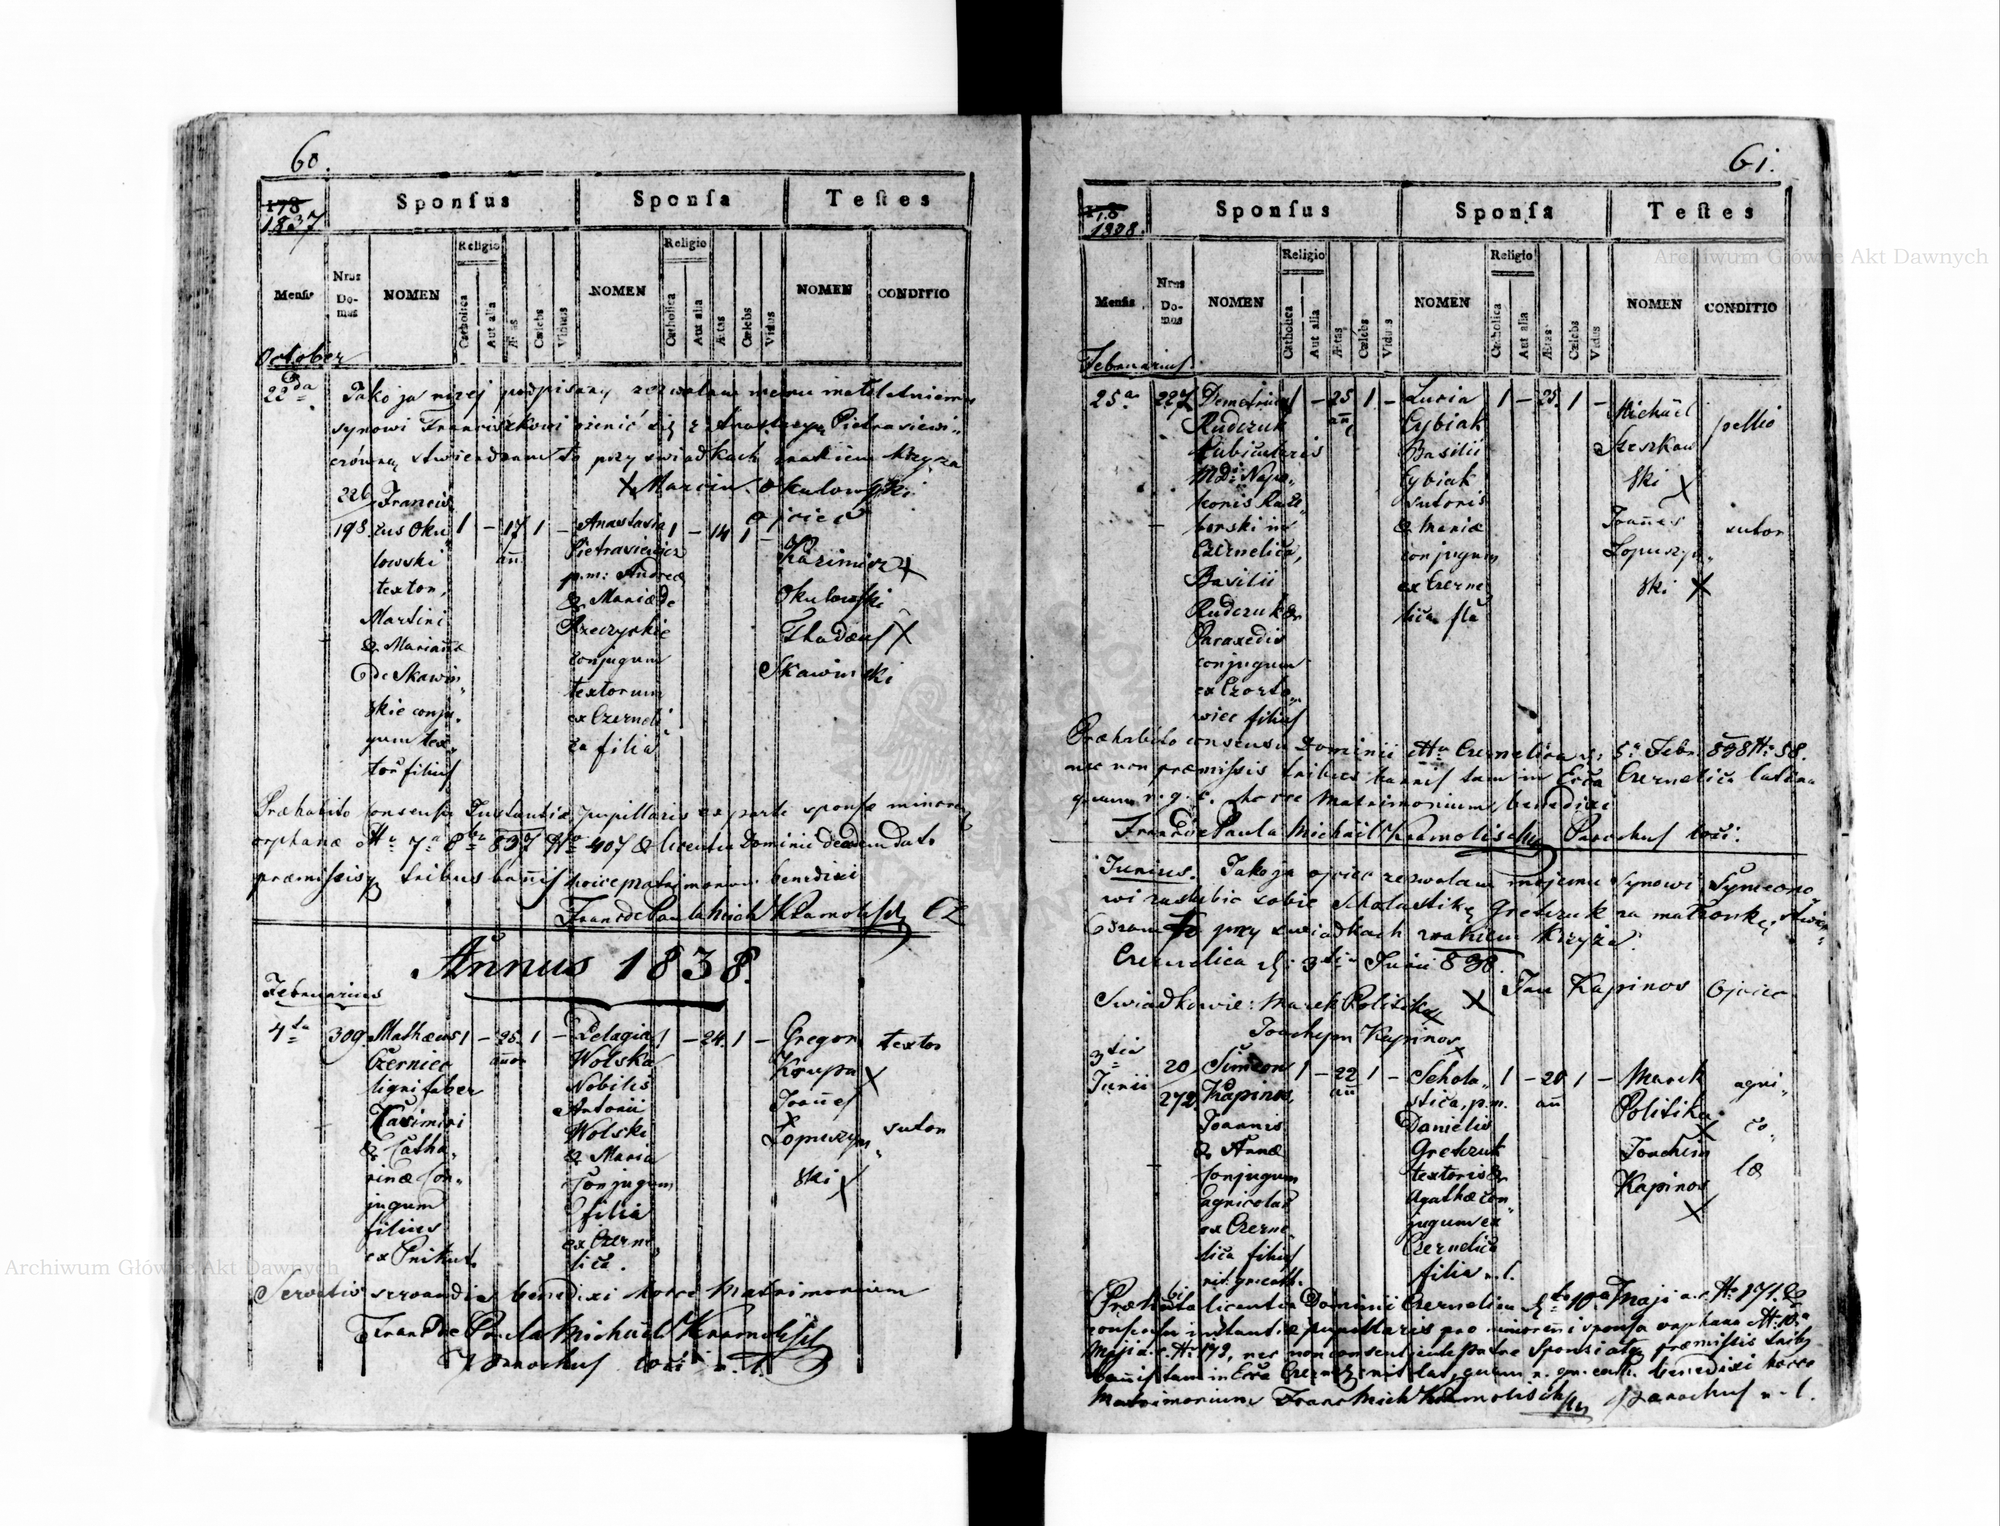 60.
Sponsus Sponsa Testes
178
1837
Religio Religio
Mensis Nrus Domus NOMEN Catholica Aut alia Ætas Cœlebs Viduus NOMEN Catholica Aut alia Ætas Cœlebs Vidua NOMEN CONDITIO
October
22da Jako ja niżej podpisany zezwalam memu małoletniemu
synowi Franciszkowi żenić się z Anastazyą Pietraviewi„
czówną stwierdzam to przy swiadkach znakiem krzyża
X Marcin Okulowski
ojciec
226
198
Francis„
cus Oku„
lowski
textor,
Martini
& Mariañæ
de Skawin„
skie conju„
gum tex„
tor filius
1 – 17 añ 1 –
Anastasia
Pietraviewicz
p.m: Andreæ
& Mariæ de
Rzeczyskie
conjugum
textorum
ex Czerneli„
ca filia
1 – 14 1 –
Kazimierz X
Okulowski
Thadæus X
Skawinski
Præhabito consensu Instantiæ pupillaris ex parte sponsæ minoren
orphanæ dtto 7a 8bris 837 No 407 & licentia Dominii de eodem dato
præmissisq tribus bañis hocce matrimonium benedixi
Franc de Paula Mich Kramolisch
Annus 1838.
Februarius
4ta 309.
Mathæus
Czerniec
ligni faber
Casimiri
& Catha„
rinæ Con„
jugum
filius
ex Pnikut
1 – 25 años 1 –
Pelagia
Wolska
Nobilis
Antonii
Wolski
& Maria
Conjugum
filia
ex Czerne„
lica.
1 – 24. 1 –
Gregor
Krupa X
Joañes
Łopuszyn„
ski X
textor
sutor
Servatis servandis benedixi hocce Matrimonium
Franc de Paula Michaël Kramolisch
Parochus loci r. l.
61.
Sponsus Sponsa Testes
178
1838.
Religio Religio
Mensis Nrus Domus NOMEN Catholica Aut alia Ætas Cœlebs Viduus NOMEN Catholica Aut alia Ætas Cœlebs Vidua NOMEN CONDITIO
Februarius
25a 227
Demetrius
Rudczuk
Cubicularis
MD: Napo„
leonis Raci„
borski in
Czernelica,
Basilii
Rudczuk &
Paraxedis
conjugum
ex Czorto„
wiec filius
1 – 25 añ 1 –
Lucia
Cybiak
Basilii
Cybiak
sutoris
& Mariæ
conjugum
ex Czerne„
lica fla
1 – 25. 1 –
Michaël
Szeszkow
ski X
Joañes
Łopuszyn„
ski X
pellio
sutor
Præhabito consensu Dominii dtto Czernelica d: 5a Febr. 838 No 58.
nec non præmissis tribus bannis tam in Ecca Czernelica latina
quam r. g. c. hocce Matrimonium benedixi
Franc de Paula Michaël Kramolisch Parochus loci:
Junius. Jako ja ojciec zezwalam mojemu synowi Symeono
wi zaslubic sobie Scholastikę Gretczuk za małżonkę, stwier„
dzam to przy swiadkach znakiem krzyża.
Czernelica d: 3tia Junii 838.
Jan Kapinos Ojciec
Swiadkowie: Marek Politika X
Joachym Kapinos
X
3tia
Junii
20
272
Simeon
Kapinos,
Joannis
& Annæ
Conjugum
agricolar
ex Czerne„
lica filius
rit. gr. cath.
1 – 22 añ 1 –
Schola„
stica, p.m.
Danielis
Gretczuk
textoris &
Agathæ con„
jugum ex
Czernelica
filia r. l.
1 – 20 añ 1 –
Marek
Politika
X
Joachim
Kapinos
X
agri„
co„
læ
Præhabita licentia Dominii Czernelica de 10a Maji a.c. No 171. &
consensu instantiæ pupillaris pro minoreñi sponsa orphana dtto 10a
Maji a.c. No 172, nec non consentiente patre Sponsi atq præmissis tribus
bañis tam in Ecca Czernel: rit. lat. quam r. gr. cath. benedixi hocce
Matrimonium Franc Mich Kramolisch Parochus r. l.
Archiwum Główne Akt Dawnych
Archiwum Główne Akt Dawnych